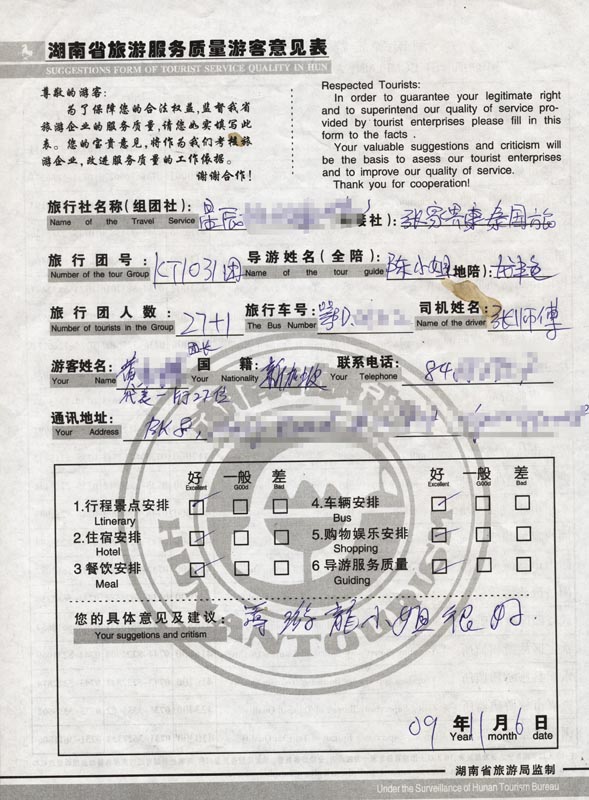 湖南省旅游服务质量游客意见表
SUGGESTIONS FORM OF TOURIST SERVICE QUALITY IN HUN
尊敬的游客:
为了保障您的合法权益,监督我省
旅游企业的服务质量,请您如实填写此
表。您的宝贵意见,将作为我们考核旅
游企业,改进服务质量的工作依据。
谢谢合作!
Respected Tourists:
In order to guarantee your legitimate right
and to superintend our quality of service pro-
vided by tourist enterprises please fill in this
form to the facts .
Your valuable suggestions and criticism will
be the basis to asess our tourist enterprises
and to improve our quality of service.
Thank you for cooperation!
旅行社名称(组团社): 星辰 接社): 张家界康泰国旅
Name of the Travel Service
旅行团号: KT1031团 导游姓名(全陪): 陈小姐 地陪):
Number of the tour Group Name of the tour guide
旅行团人数: 27+1 旅行车号: 鄂D. 司机姓名: 张师傅
Number of tourists in the Group The Bus Number Name of the driver
团长
游客姓名: 国籍: 新加坡 联系电话: 84
Your Name Your Nationality Your Telephone
一行27位
通讯地址: BLK
Your Address
好 一般 差 好 一般 差
Excellent GOOd Bad Excellent GOOd Bad
1.行程景点安排 4.车辆安排
Ltinerary Bus
2.住宿安排 5.购物娱乐安排
Hotel Shopping
3 餐饮安排 6 导游服务质量
Meal Guiding
您的具体意见及建议: 导游龍小姐很好.
Your suggetions and critism
HUNAN TOURISM
09 年 11 月 6 日
Year month date
湖南省旅游局监制
Under the Surveillance of Hunan Tourism Bureau